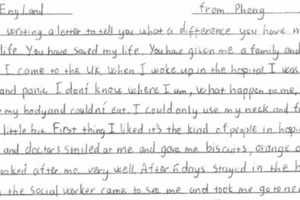 England from Phong
writing a letter to tell you what a difference you have m
life. You have saved my life. You have given me a family and
I came to the UK. When I woke up in the hospital I was
and panic I dont know where I am, what happen to me,
my body and couldnt eat. I could only use my neck and f
little bit. First thing I liked it's the kind of people in hosp
and doctors smiled at me and gave me biscuits, orange a
ooked after me very well. After 6 days stayed in the h
the social worker came to see me and took me to ne